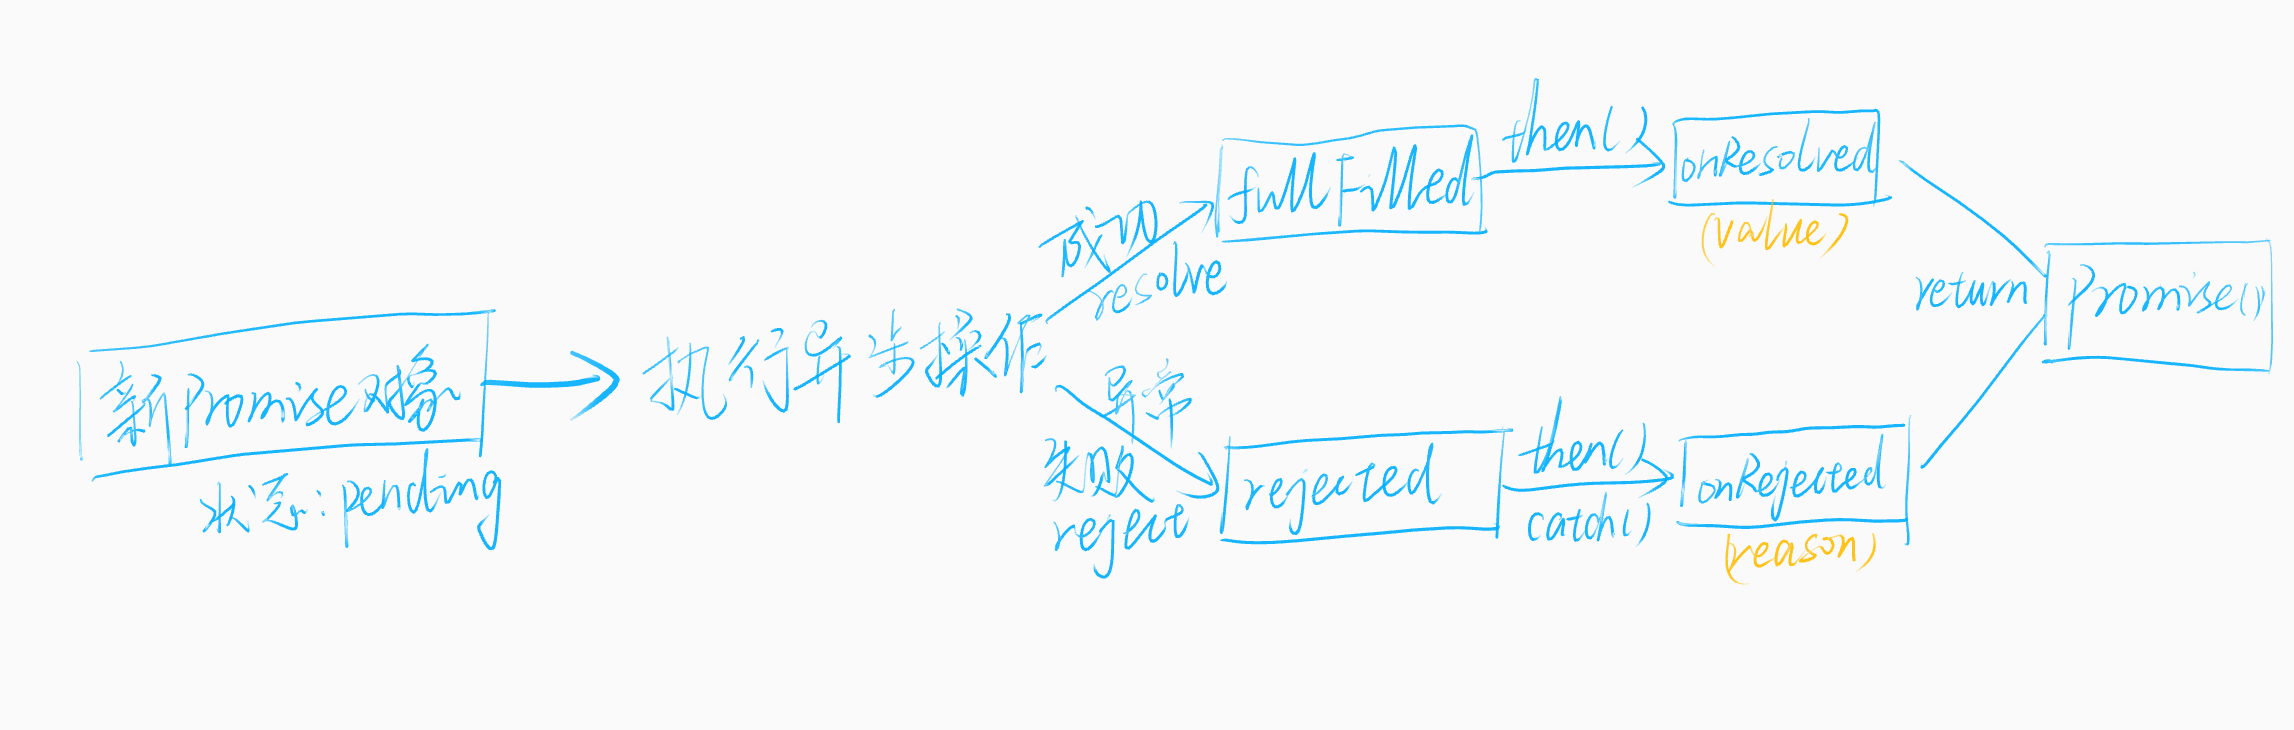 新Promise对象
状态:pending
执行异步操作
成功
resolve
fullFilled
then()
onResolved
(value)
异常
失败
reject
rejected
then()
catch()
onRejected
(reason)
return
Promise()